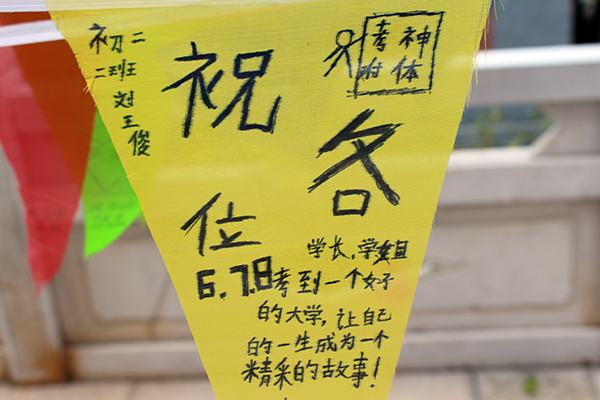 初二
二班
刘王俊
考神
附体
祝各
位
学长,学姐
6.7.8考到一个好
的大学,让自己
的一生成为一个
精采的故事!